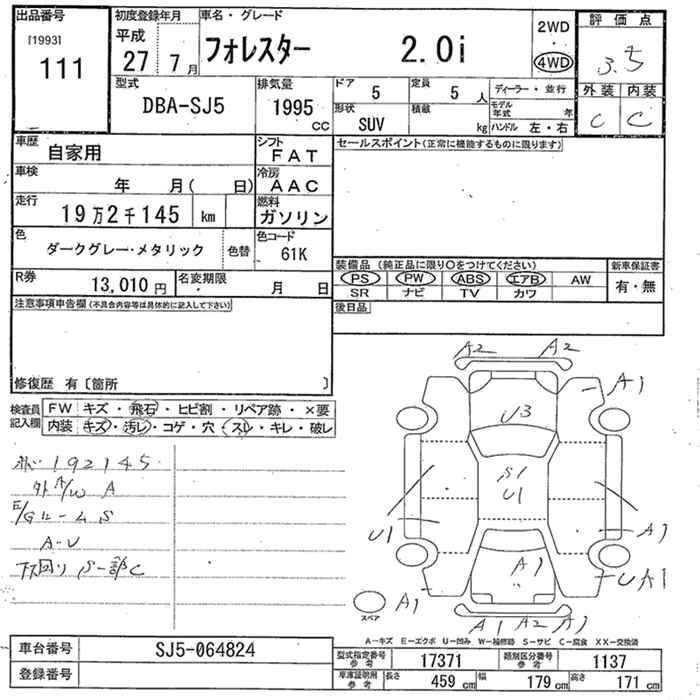 出品番号
[1993]
111
初度登録年月
平成
27 7月
車名・グレード
フォレスター 2.0i
2WD
4WD
評価点
3.5
外装 内装
C C
型式
DBA-SJ5
排気量
1995
cc
ドア
5
定員
5 人
形状
SUV
積載
kg
ディーラー・並行
モデル年式 年
ハンドル 左・右
車歴
自家用
シフト
FAT
車検
年 月( 日)
冷房
AAC
走行
19万2千145 km
燃料
ガソリン
色
ダークグレー・メタリック
色替
色コード
61K
R券
13,010円
名変期限
月 日
セールスポイント(正常に機能するものに限ります)
装備品(純正品に限り○をつけてください)
新車保証書
PS PW ABS エアB AW
SR ナビ TV カワ
有・無
後日品
注意事項申告欄(不具合内容等は具体的に記入して下さい)
修復歴 有〔箇所 〕
検査員
記入欄
FW キズ・飛石・ヒビ割・リペア跡・×要
内装 キズ・汚レ・コゲ・穴・スレ・キレ・破レ
192145
外 A/W A
E/Gルーム S
A-U
下回り S一部C
A2 A2
A1
U3
S1
U1
U1
A1
A1
UA1
A1
スペア
A1 A2 A1
A-キズ E-エクボ U-凹み W-補修跡 S-サビ C-腐食 XX-交換済
車台番号
SJ5-064824
登録番号
型式指定番号
参考
17371
類別区分番号
参考
1137
車庫証明用
参考
長さ
459 cm
幅
179 cm
高さ
171 cm